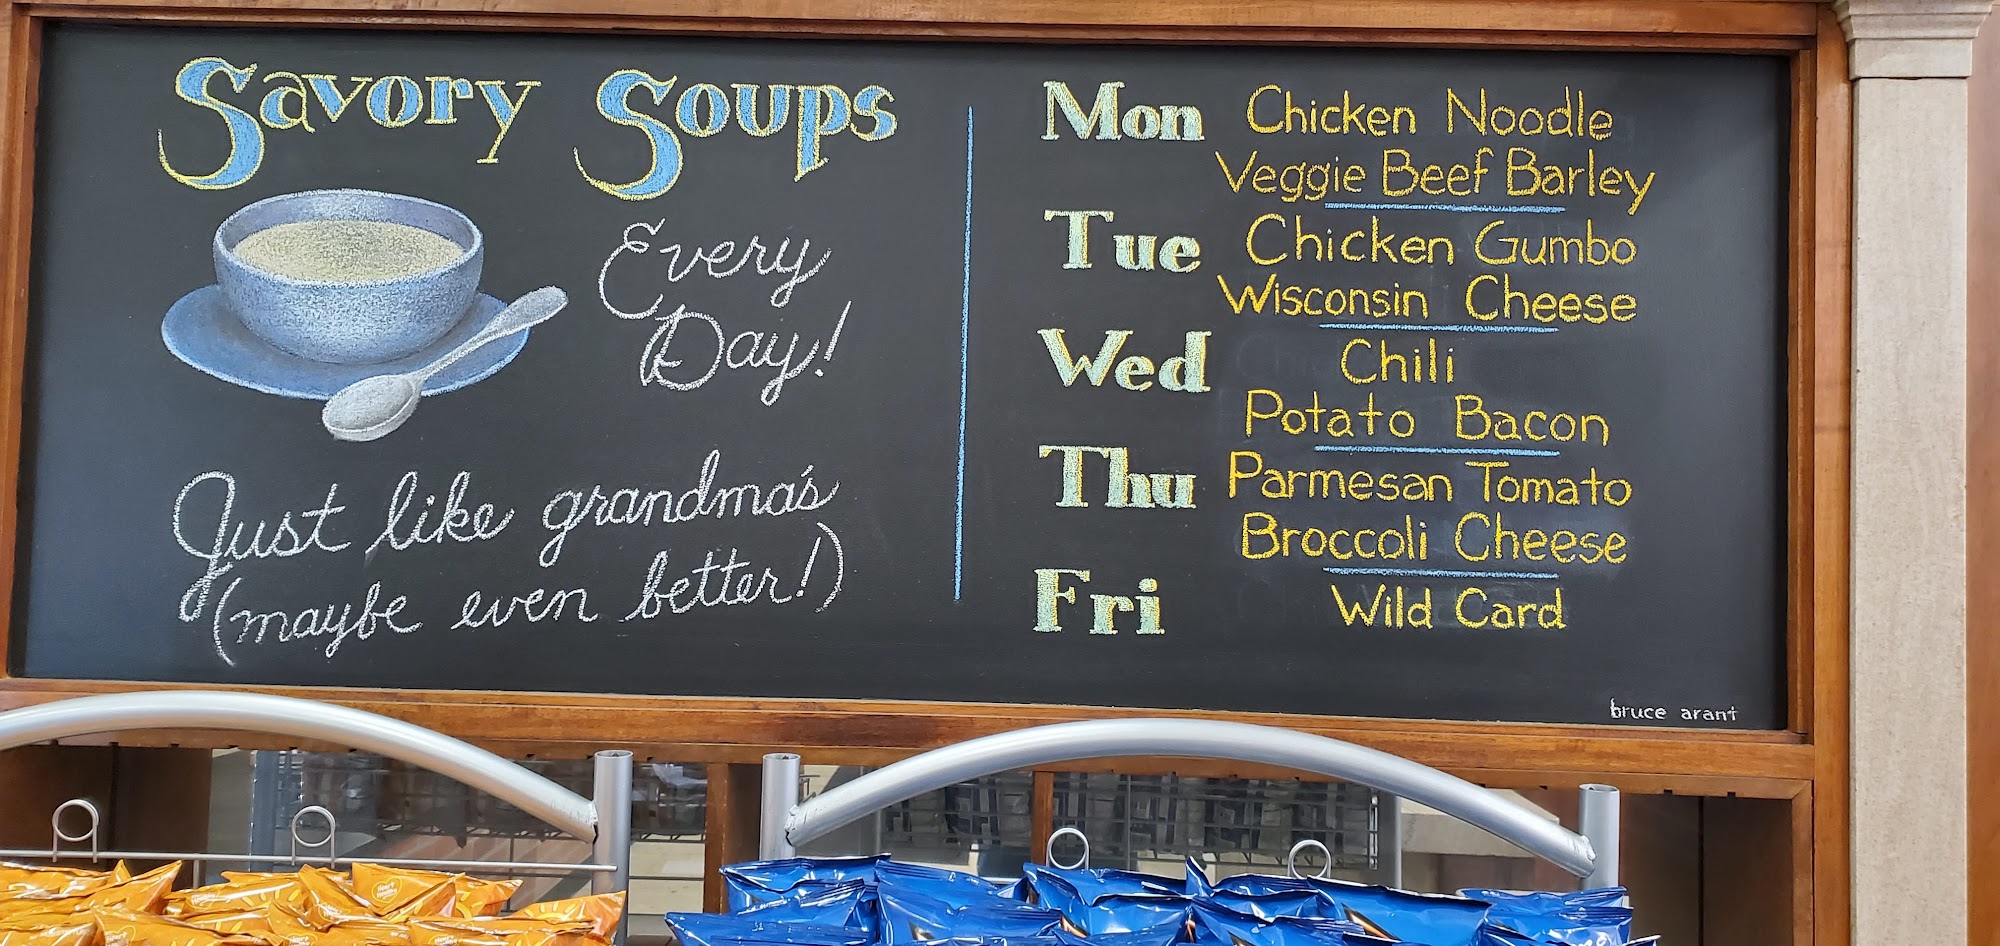 Savory Soups
Every
Day!
Just like grandma's
(maybe even better!)
Mon Chicken Noodle
Veggie Beef Barley
Tue Chicken Gumbo
Wisconsin Cheese
Wed Chili
Potato Bacon
Thu Parmesan Tomato
Broccoli Cheese
Fri Wild Card
bruce arant